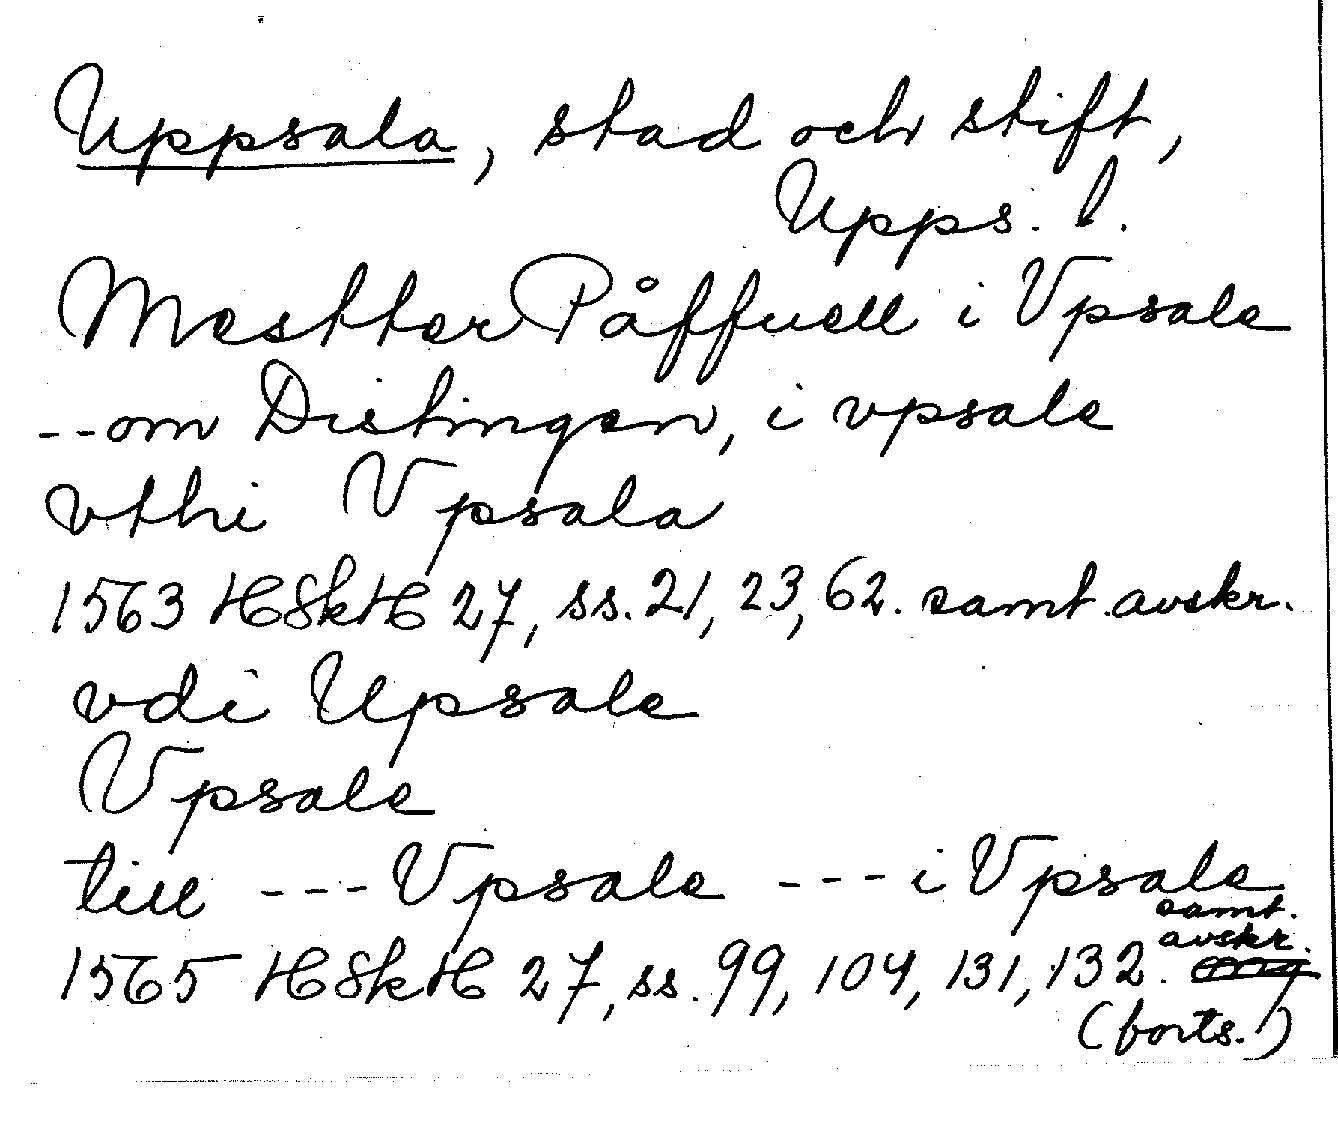 Uppsala, stad och stift,
Upps. l.
Mestter Påffuell i Vpsale
--om Distingen, i vpsale
vthi Vpsala
1563 HSkH 27, ss. 21, 23, 62. samt. avskr.
vdi Upsale
Vpsale
till --- Vpsale --- i Vpsale
1565 HSkH 27, ss. 99, 104, 131, 132. samt. avskr.
(forts.)